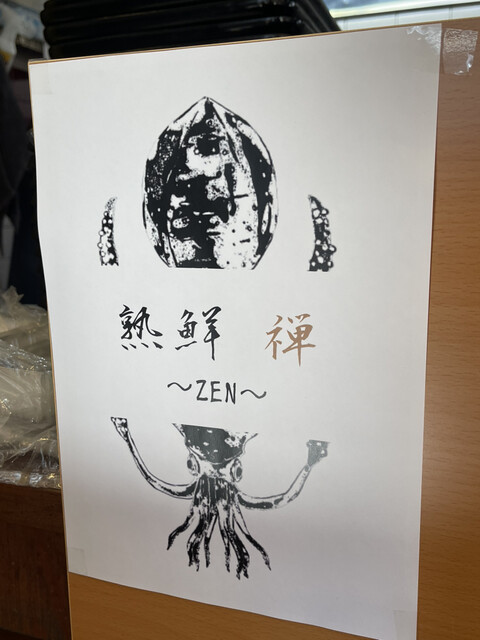 熟鮮 禅
〜ZEN〜